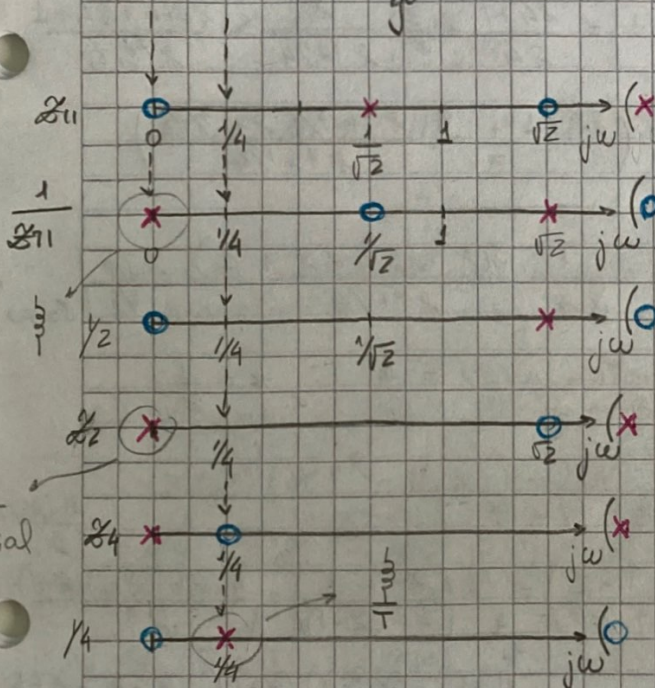 Z11
0 1/4 1/√2 1 √2 jω
1/Z11
0 1/4 1/√2 1 √2 jω
Y2
1/4 1/√2 jω
Z2
1/4 √2 jω
Z4
1/4 jω
Y4
1/4 jω